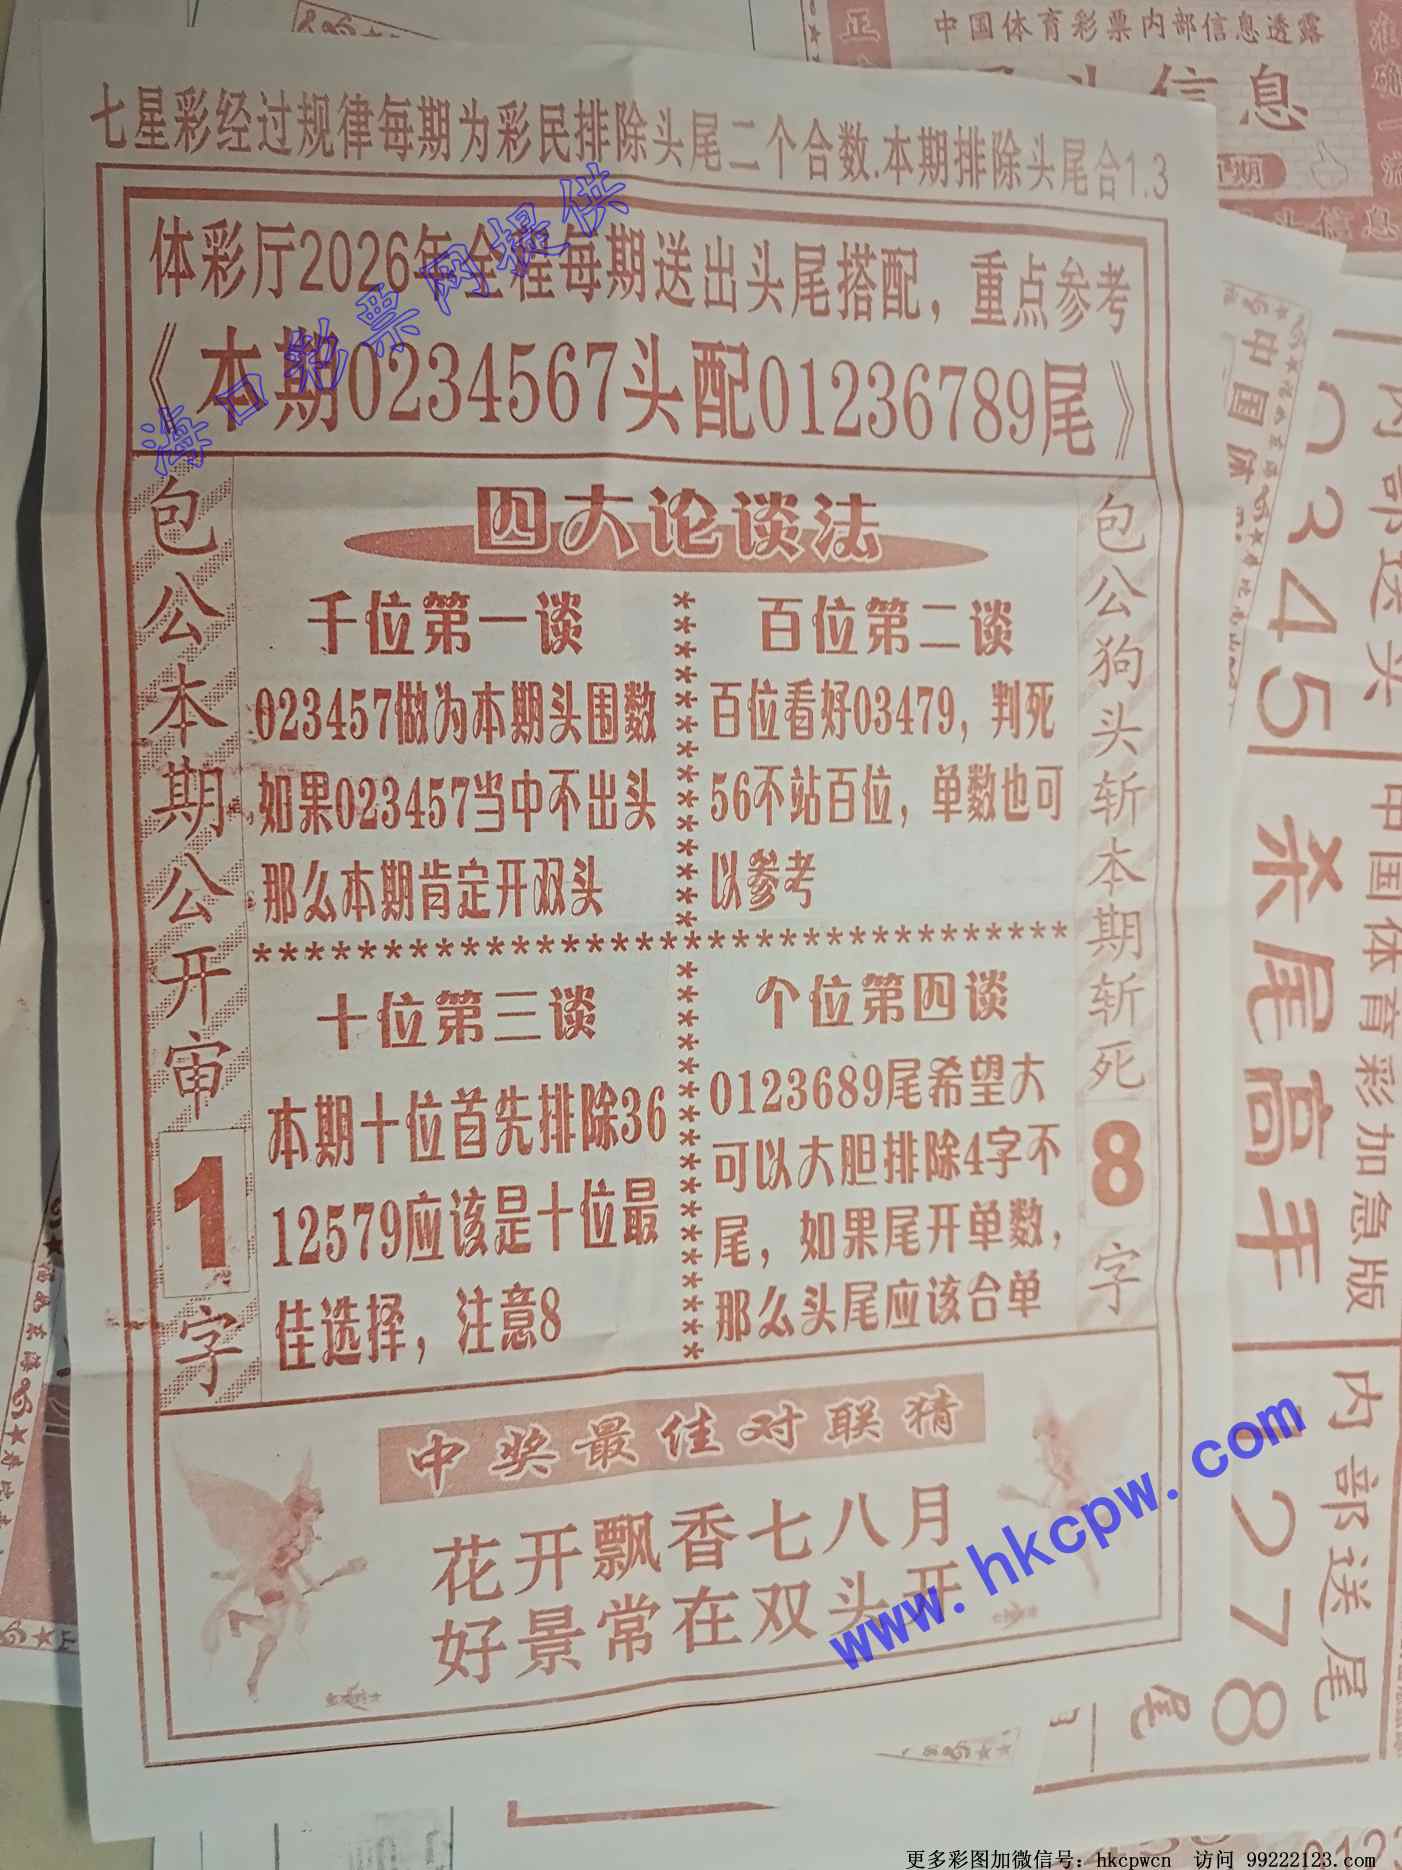 七星彩经过规律每期为彩民排除头尾二个合数.本期排除头尾合1.3
体彩厅2026年全程每期送出头尾搭配，重点参考
《本期0234567头配01236789尾》
海口彩票网提供
包公本期公开审
1
字
四大论谈法
千位第一谈
023457做为本期头围数
如果023457当中不出头
那么本期肯定开双头
百位第二谈
百位看好03479，判死
56不站百位，单数也可
以参考
十位第三谈
本期十位首先排除36
12579应该是十位最
佳选择，注意8
个位第四谈
0123689尾希望大
可以大胆排除4字不
尾，如果尾开单数，
那么头尾应该合单
包公狗头斩本期斩死
8
字
中奖最佳对联猜
花开飘香七八月
好景常在双头开
www.hkcpw.com
中国体育彩票内部信息透露
信息
准确一流
头信息
中国体
内部送头
0345
中国体育彩加急版
杀尾高手
内部送尾
278
尾
更多彩图加微信号：hkcpwcn 访问 99222123.com